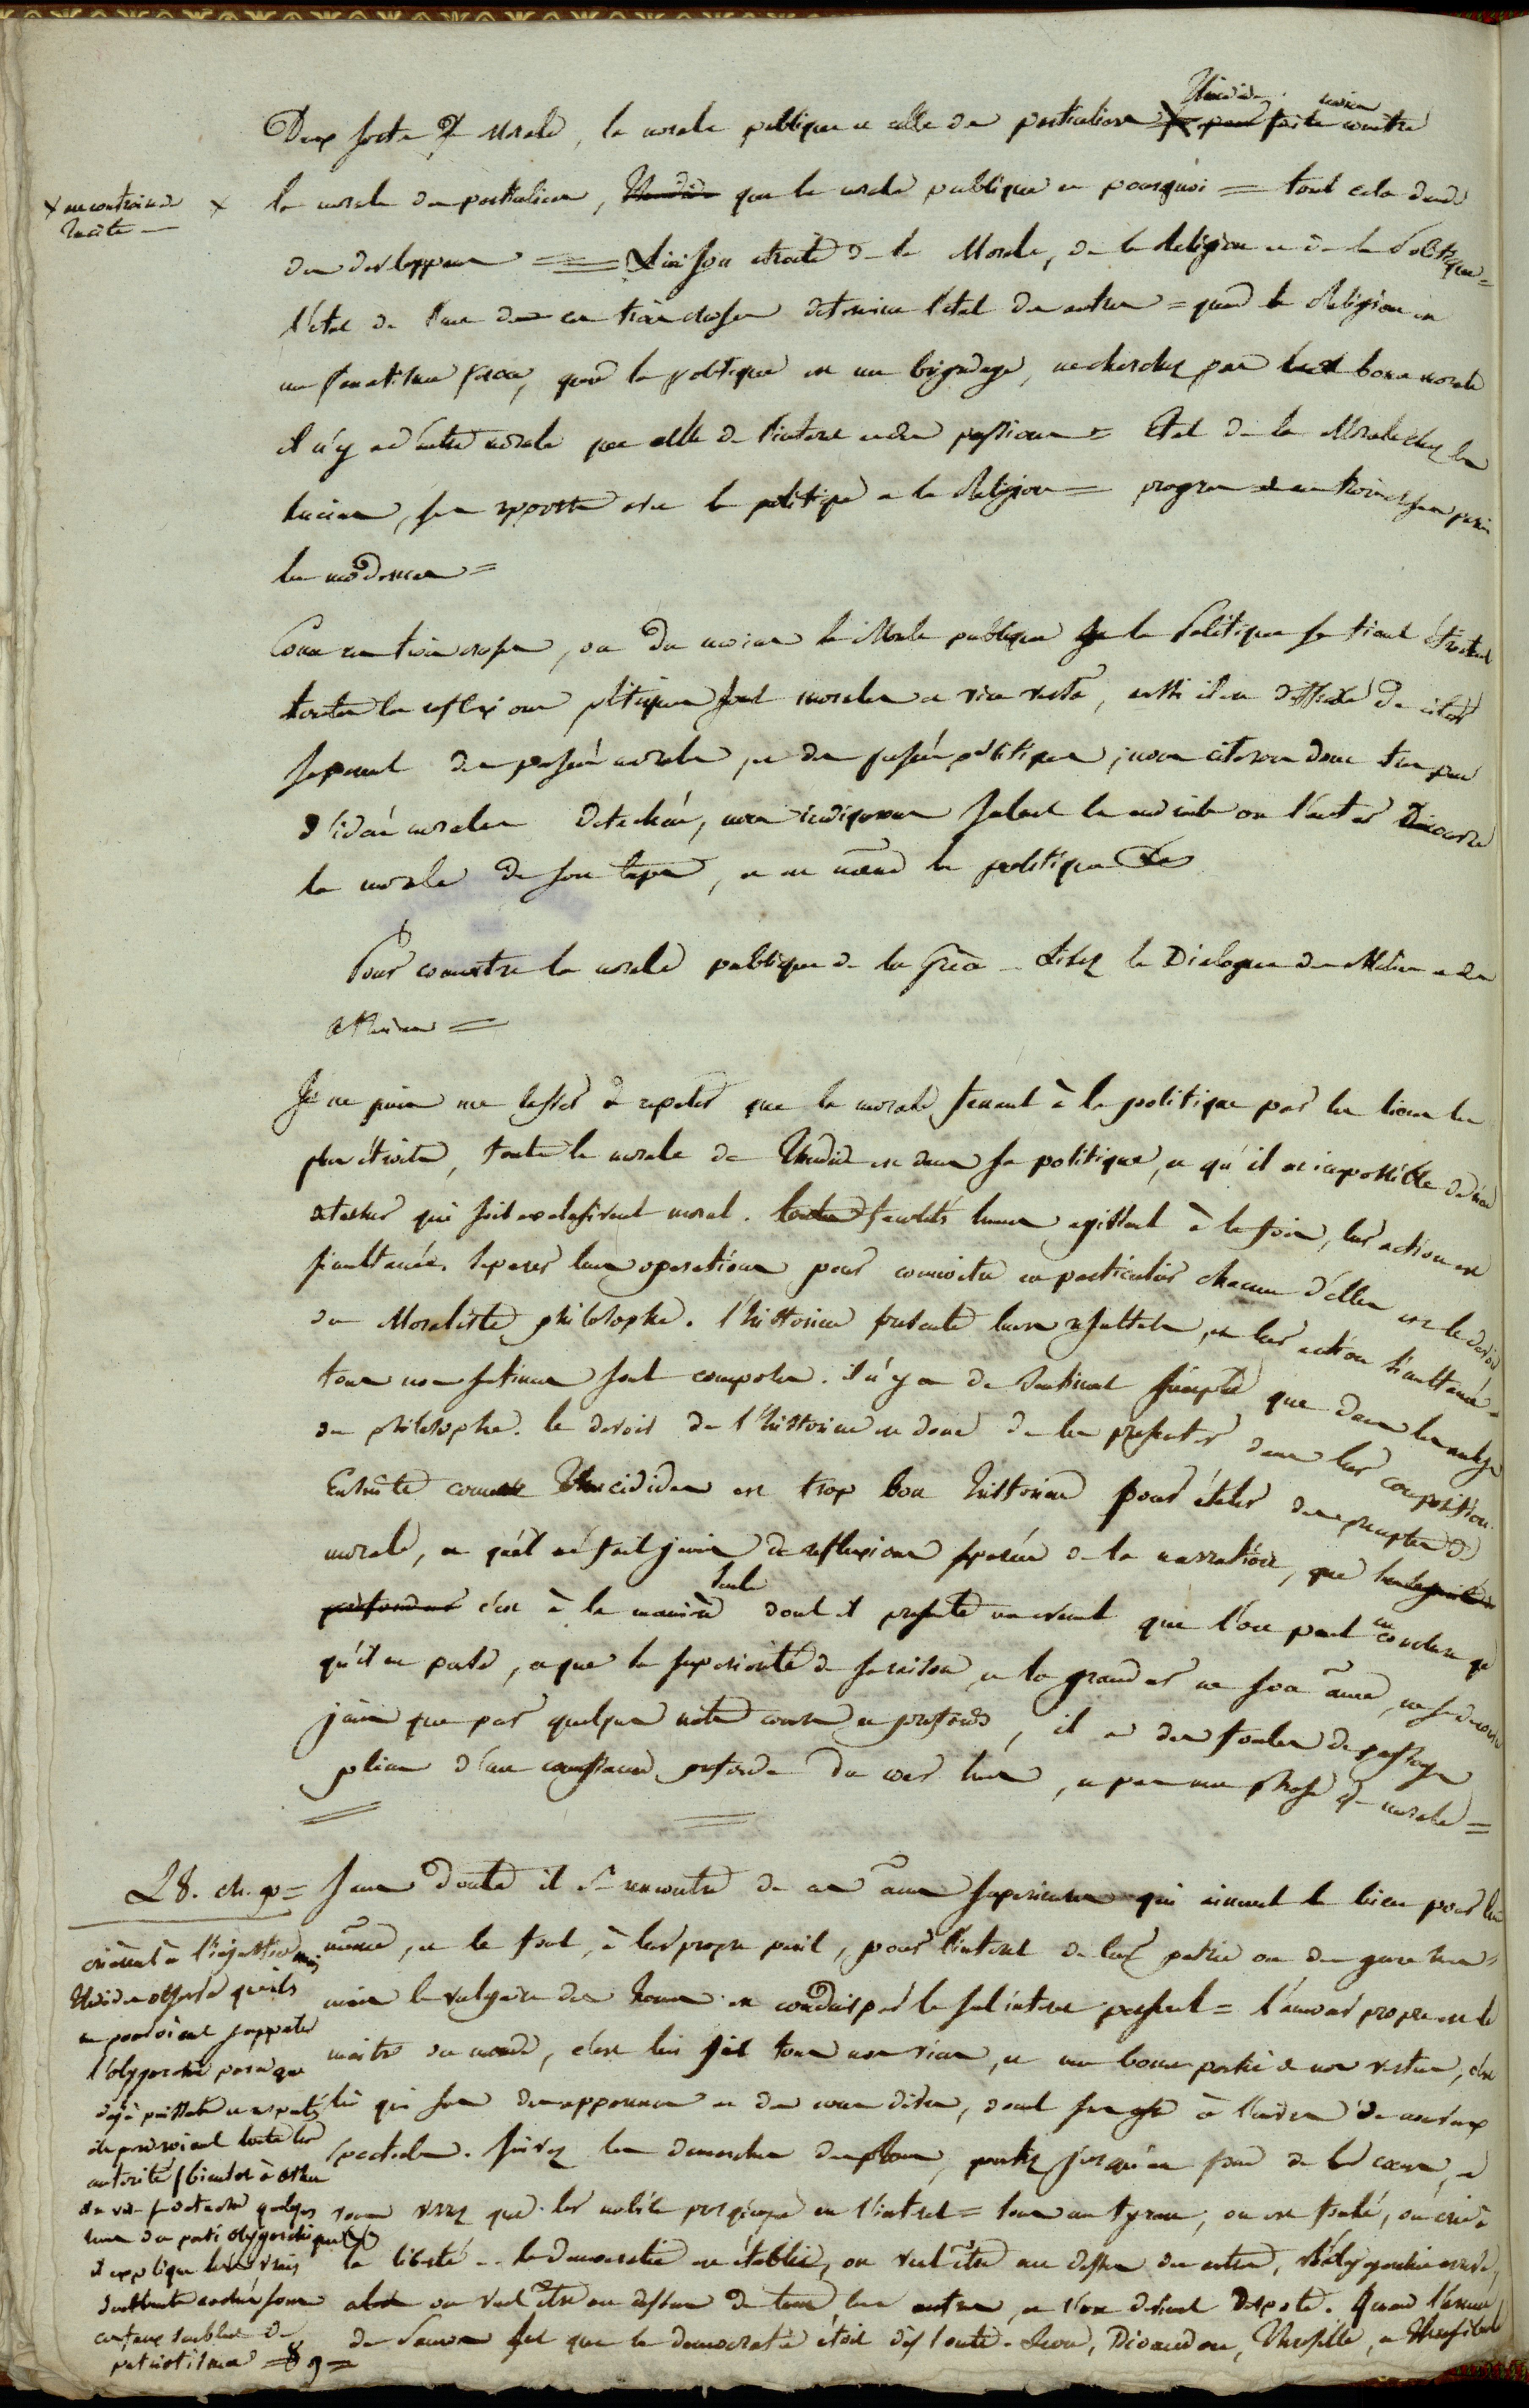 Deux sortes de morale, la morale publique et celle des particuliers Thucidide fait moins connoitre
× au contraire de Tacite —
× la morale des particuliers, que la morale publique et pourquoi = tout cela demande
des developpemens == Liaison étroite de la Morale, de la Religion et de la Politique =
l'état de l'une de ces trois choses détermine l'état des autres = quand la Religion est
un fanatisme féroce, quand la politique est un brigandage, ne cherchez pas de bonne morale
il n'y a d'autre morale que celle de l'interet et des passions = Etat de la Morale chez les
anciens, ses rapports avec la politique et la Religion = progrès de ces trois choses parmi
les modernes =
Comme ces trois choses, ou du moins la Morale publique et la Politique se tiennent étroitement
toutes les reflexions politiques sont morales et vice versâ, aussi il est difficile de citer
separement des pensées morales, et des pensées politiques; nous citerons donc très peu
d'idées morales detachées, nous indiquerons seulement les endroits où l'auteur découvre
la morale de son temps, et en même tems la politique
Pour connoitre la morale publique de la Grèce - Lisez le Dialogue des Méliens et des
Athéniens =
Je ne puis me lasser de repeter que la morale tenant à la politique par les liens les
plus étroits, toute la morale de Thucidide est dans sa politique, et qu'il est impossible de rien
detacher qui soit exclusivement moral. facultés humaines agissent à la fois, leur action est
simultanée. Separer leurs operations pour connoitre en particulier chacune d'elles est le devoir
du Moraliste philosophe. l'historien presente leurs resultats, et leur action simultanée.
tous nos sentimens sont composés. il n'y a de sentiment simple que dans les analyses
du philosophe. le devoir de l'historien est donc de les presenter dans leur composition.
Ensuite comme Thucidide est trop bon historien pour étaler des preceptes de
morale, et qu'il ne fait jamais de reflexions separées de la narration, que
c'est à la manière seule dont il presente un évènement que l'on peut en conclure ce
qu'il en pense, et que la superiorité de sa raison, et la grandeur de son âme, ne se découvre
jamais que par quelques mots courts et profonds, il a des foules de passages
pleins d'une connoissance profonde du cœur humain, et pas une phrase de morale =
L 8. ch. 9 = Sans doute il se rencontre de ces âmes superieures qui aiment le bien pour lui
même, et le font, à leur propre peril, pour l'interet de leur patrie ou du genre humain
mais le vulgaire des hommes est conduit par le seul interet personnel = l'amour propre est le
maitre du monde, c'est lui qui fait tous nos vices, et une bonne partie de nos vertus, c'est
lui qui fait
spectacles. Suivez les demarches des hommes, portez jusqu'au fond de leur cœur, et
vous verrez que leur mobile presque unique est l'interet = sous un tyran, on est foulé, on crie à
la liberté - la democratie est établie, on veut être au dessus des autres, l'olygarchie arrive,
alors on veut être au dessus de tous les autres, et l'on devient Despote. Quand l'armée
de Samos sut que la democratie étoit dissoute. Leon, Diomedon, Thrasylle, et Thrasibule
crièrent à l'injustice mais
Thucidide observe qu'ils
ne pouvoient supporter
l'olygarchie parce que
déjà puissants et respectés
ils perdroient toute leur
autorité / bientot à Athenes
on voit se detacher quelques
uns du parti olygarchique
il explique leurs vrais
sentiments cachés sous
certains semblant de
patriotisme = 89 =